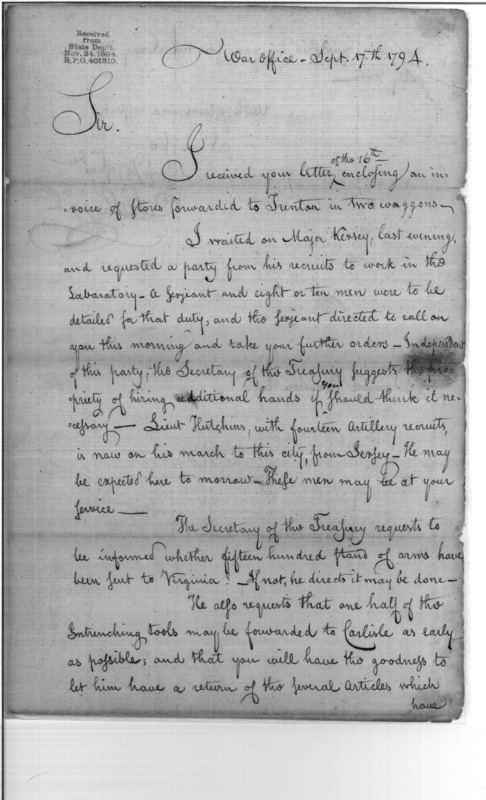 Received
from
State Dep't.
Nov. 24, 1894.
R.P.O. 401310.
War office - Sept. 17.th 1794.
Sir.
I received your letter, of the 16th enclosing an in-
-voice of stores forwarded to Trenton in two waggons -
I waited on Major Kersey, last evening,
and requested a party from his recruits to work in the
Labaratory - a Serjeant and eight or ten men were to be
detailed for that duty, and the Serjeant directed to call on
you this morning and take your further orders - Independant
of this party, the Secretary of the Treasury suggests the pro-
priety of hiring additional hands if you should think it ne-
-cessary - Lieut Hutchins, with fourteen Artillery recruits,
is now on his march to this city, from Jersey - He may
be expected here to morrow - These men may be at your
service -
The Secretary of the Treasury requests to
be informed whether fifteen hundred stand of arms have
been sent to Virginia? - If not, he directs it may be done -
He also requests that one half of the
Intrenching tools may be forwarded to Carlisle as early
as possible; and that you will have the goodness to
let him have a return of the several articles which
have